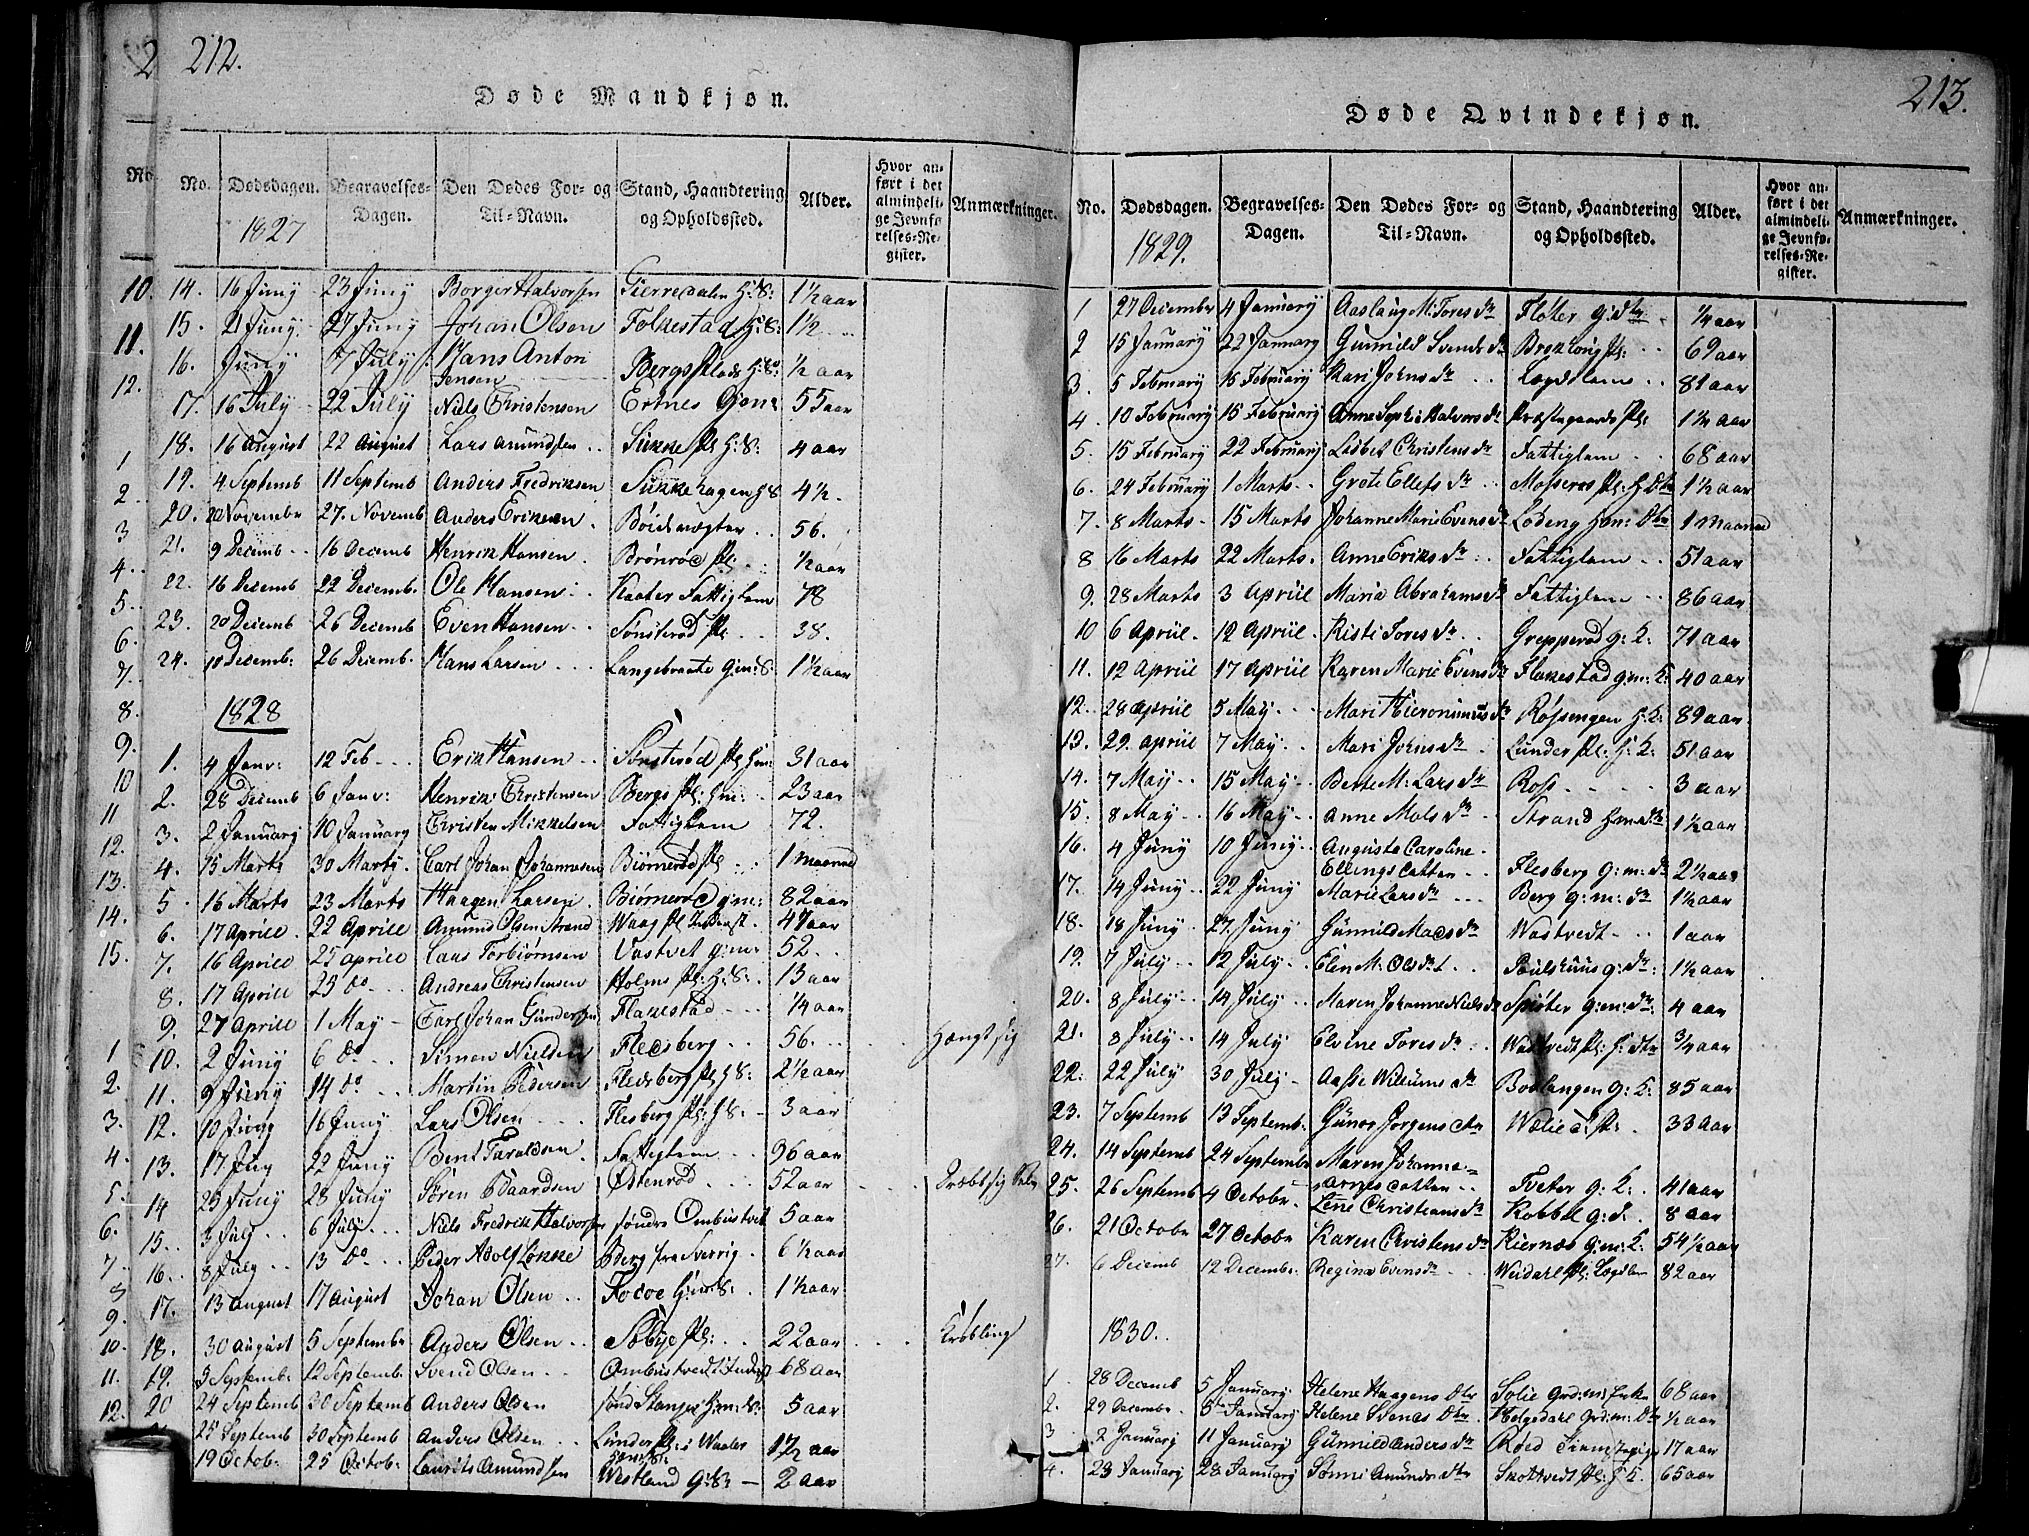 212.
Døde Mandkjøn.
No. Dødsdagen. Begravelses-Dagen. Den Dødes For- og Til-Navn. Stand, Haandtering og Opholdssted. Alder. Hvor anført i det almindelige Jevnførelses-Register. Anmærkninger.
1827
14. 16 Juny 23 Juny Borger Halvorsen H:S: 1½ aar
15. 21 Juny 27 Juny Johan Olsen Folkestad H:S: 1½
16. Juny 7 July Hans Anton Jensen Bergs Plads ½ aar
17. 16 July 22 July Niels Christensen 55 aar
18. 16 August 22 August Lars Amundsen Sukke Pl: H:S: 4 aar
19. 4 Septemb 11 Septemb Anders Fredriksen Sukkehagen H:S 4½.
20. 20 Novembr 27. Novemb Anders Eriksen 56.
21. 9 Decemb 16 Decemb Henrik Hansen Brönröd Pl: ½ aar
22. 16 Decemb 22 Decemb. Ole Hansen Fattiglem 78
23. 20 Decemb 26 Decemb Even Hansen Sönsteröd Pl 38.
24. 18 Decemb: 26 Decemb. Hans Larsen Langebraate Gm:S: 1½ aar
1828
1. 4 Janv: 12 Feb Erik Hansen Sönsteröd Pl Hm: 31 aar
2. 28 Decemb 6 Janv: Henrik Christensen Bergs Pl: Hm: 23 aar
3. 2 January 10 January Christen Mikkelsen Fattiglem 72.
4. 15 Marts 30 Marts. Carl Johan Johannesen Biörneröd Pl 1 Maaned
5. 16 Marts 23 Marts Haagen Larsen. Biörneröd g:m: 82 aar
6. 17 Aprill 22 Aprill Amund Olsen Strand Waag Pl 47 aar
7. 16 Aprill 25 Aprill Lars Torbiörnsen Vastvet g:m: 52
8. 17 Aprill 25 do Andreas Christensen Holms Pl: H:S: 13 aar
9. 27 Aprill 1 May Carl Johan Gundersen Flakestad ¼ aar
10. 2 Juny 6 do Simen Nielsen Flesberg 56. Hængt sig
11. 9 Juny 14 do Martin Pedersen Flesberg Pl H S: 2½ aar
12. 10 Juny 16 Juny Lars Olsen Flesberg Pl: H S: 3 aar
13. 17 Juny 22 Juny Bent Taraldsen. Fattiglem 96 aar
14 23 Juny 28 Juny Sören Edvardsen Østenröd 52 aar
15. 3 July 6 July Niels Fredrik Halvorsen söndre Ombustvedt 5 aar
16. 8 July 13 do Peder Adolf Lökke Berg fra Sverrig 6½ aar
17. 13 August 17 August Johan Olsen Hm:S: 1½ aar
18. 30 August 5 Septembr Anders Olsen Pl: 22 aar Krøbling
19. 3 Septemb: 12 Septemb. Svend Olsen Ombustvedt 68 aar
20 24 Septemb 30 Septemb Anders Olsen 5 aar
25 Septemb 30 Septemb Anders Olsen Lunder Pl: i Waaler
19 Octob: 25 Octob: Laurits Amundsen Westland G:S: 2 aar
213.
Døde Qvindekjøn.
No. Dødsdagen. Begravelses-Dagen. Den Dødes For- og Til-Navn. Stand, Haandtering og Opholdssted. Alder. Hvor anført i det almindelige Jevnførelses-Register. Anmærkninger.
1829.
1 27 Decembr 4 January Aaslaug M: Tores Dr Floter g:dtr ¼ aar
2 15 January 22 January Gunnild Svends dr Pl: 69 aar
3. 5 February 15 February Kari Jorns dr Lægdslem 81 aar
4. 10 February 15 February Anne Sophi Halvors dr Præstegaards Pl: 1¼ aar
5. 15 February 22 February Lisbet Christens dr Fattiglem 68 aar
6. 24 February 1 Marts Grete Ellefs dr Mosseros Pl: H Dtr 1½ aar
7. 8 Marts 15 Marts Johanne Marie Evens dr Lodeng Hm: Dtr 1 Maaned
8 16 Marts 22 Marts Anne Eriks dr Fattiglem 51 aar
9. 28 Marts 3 Apriil Maria Abrahams dr Fattiglem 86 aar
10 6 Apriil 12 Apriil Kisti Tores dr Grepperöd g: K: 71 aar
11. 12 Apriil 17 Apriil Karen Marie Evens dr Flakestad gm: K: 40 aar
12. 28 Apriil 5 May Mari Hieronimus dr Røssengen H: K: 89 aar
13. 29. Apriil 7 May Mari Jorns dr Lunder Pl: H: K: 51 aar
14. 7 May 15 May Berte M: Lars dr Ross 3 aar
15. 8 May 16 May Anne Mols dr Strand Hm: dtr 1½ aar
16. 4 Juny 10 Juny Auguste Caroline Ellingsdatter Flesberg G:m: dr 2½ aar
17. 14 Juny 22 Juny Marie Lars dr Berg g:m: dr 1½ aar
18. 18 Juny 27. Juny Gunnild Mads dr Wastvedt 1 aar
19. 7 July 12 July Elen M: Ols dr Poulshuus g: dr: 1½ aar
20. 8 July 14 July Maren Johanne Niels dr Spiöter g:m: dr: 4 aar
21. 8 July 14 July Elvine Tores dr Wastvedt Pl: H: dtr ¾ aar
22. 22 July 30 July Aasse Willums dr Boslangen g: K: 85 aar
23. 7 Septemb 13 Septemb. Gunor Jorgens dtr 33 aar
24. 14 Septemb 24 Septembr Maren Johanne Arnesdatter Tveter g: K: 41 aar
25. 26 Septemb 4 Octobr Lene Christians dr Kobbel g: d: 8 aar
26. 21 Octobr 27 Octobr Karen Christens dr Kiernæs g:m: K: 54½ aar
27. 6 Decemb 12 Decembr. Regine Evens dr Weidahl Pl: Lægdslem 82 aar
1830.
1. 28 Decemb 5 January. Helene Haagens Dtr Solie Grd:m: Enke 68 aar
2. 29 Decembr. 5 January Helene Svends Dtr Helgedahl Grd:m: Dtr ½ aar
3 2 January 11 January Gunnild Anders dr Röed 17 aar
4. 23 January 28 January Sönni Amunds dtr Skottvedt Pl: H K: 65 aar